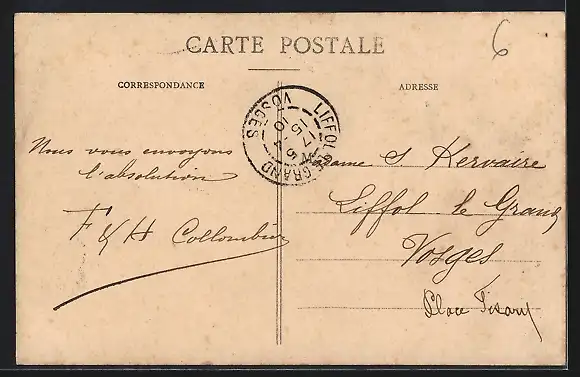 CARTE POSTALE
CORRESPONDANCE
ADRESSE
6
LIFFOL-LE-GRAND
VOSGES
Nous vous envoyons
l'absolution
F & H Collombier
Madame S Kervaire
Liffol le Grand
Vosges
Place